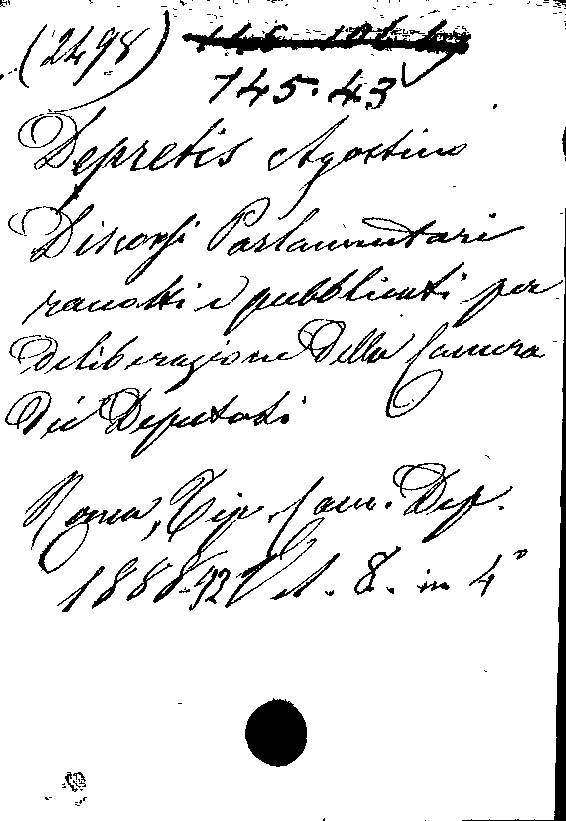 (2498)
145.43
Depretis Agostino
Discorsi Parlamentari
raccolti e pubblicati per
deliberazione della Camera
dei Deputati
Roma, Tip. Cam. Dep.
1888-92 V. 8. in 4°